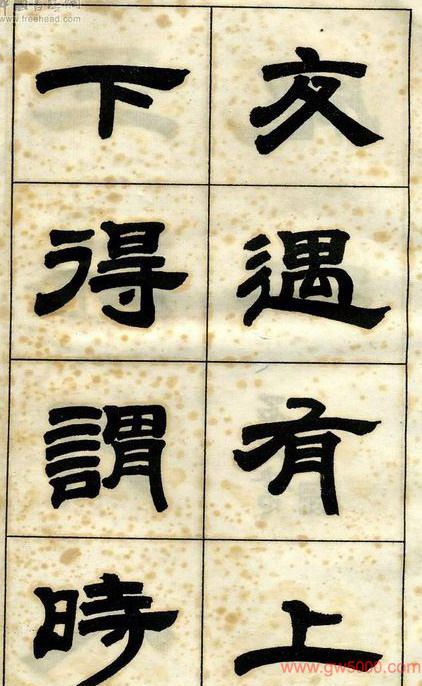 友遇有上
下得謂時
www.freehead.com
www.gw5000.com